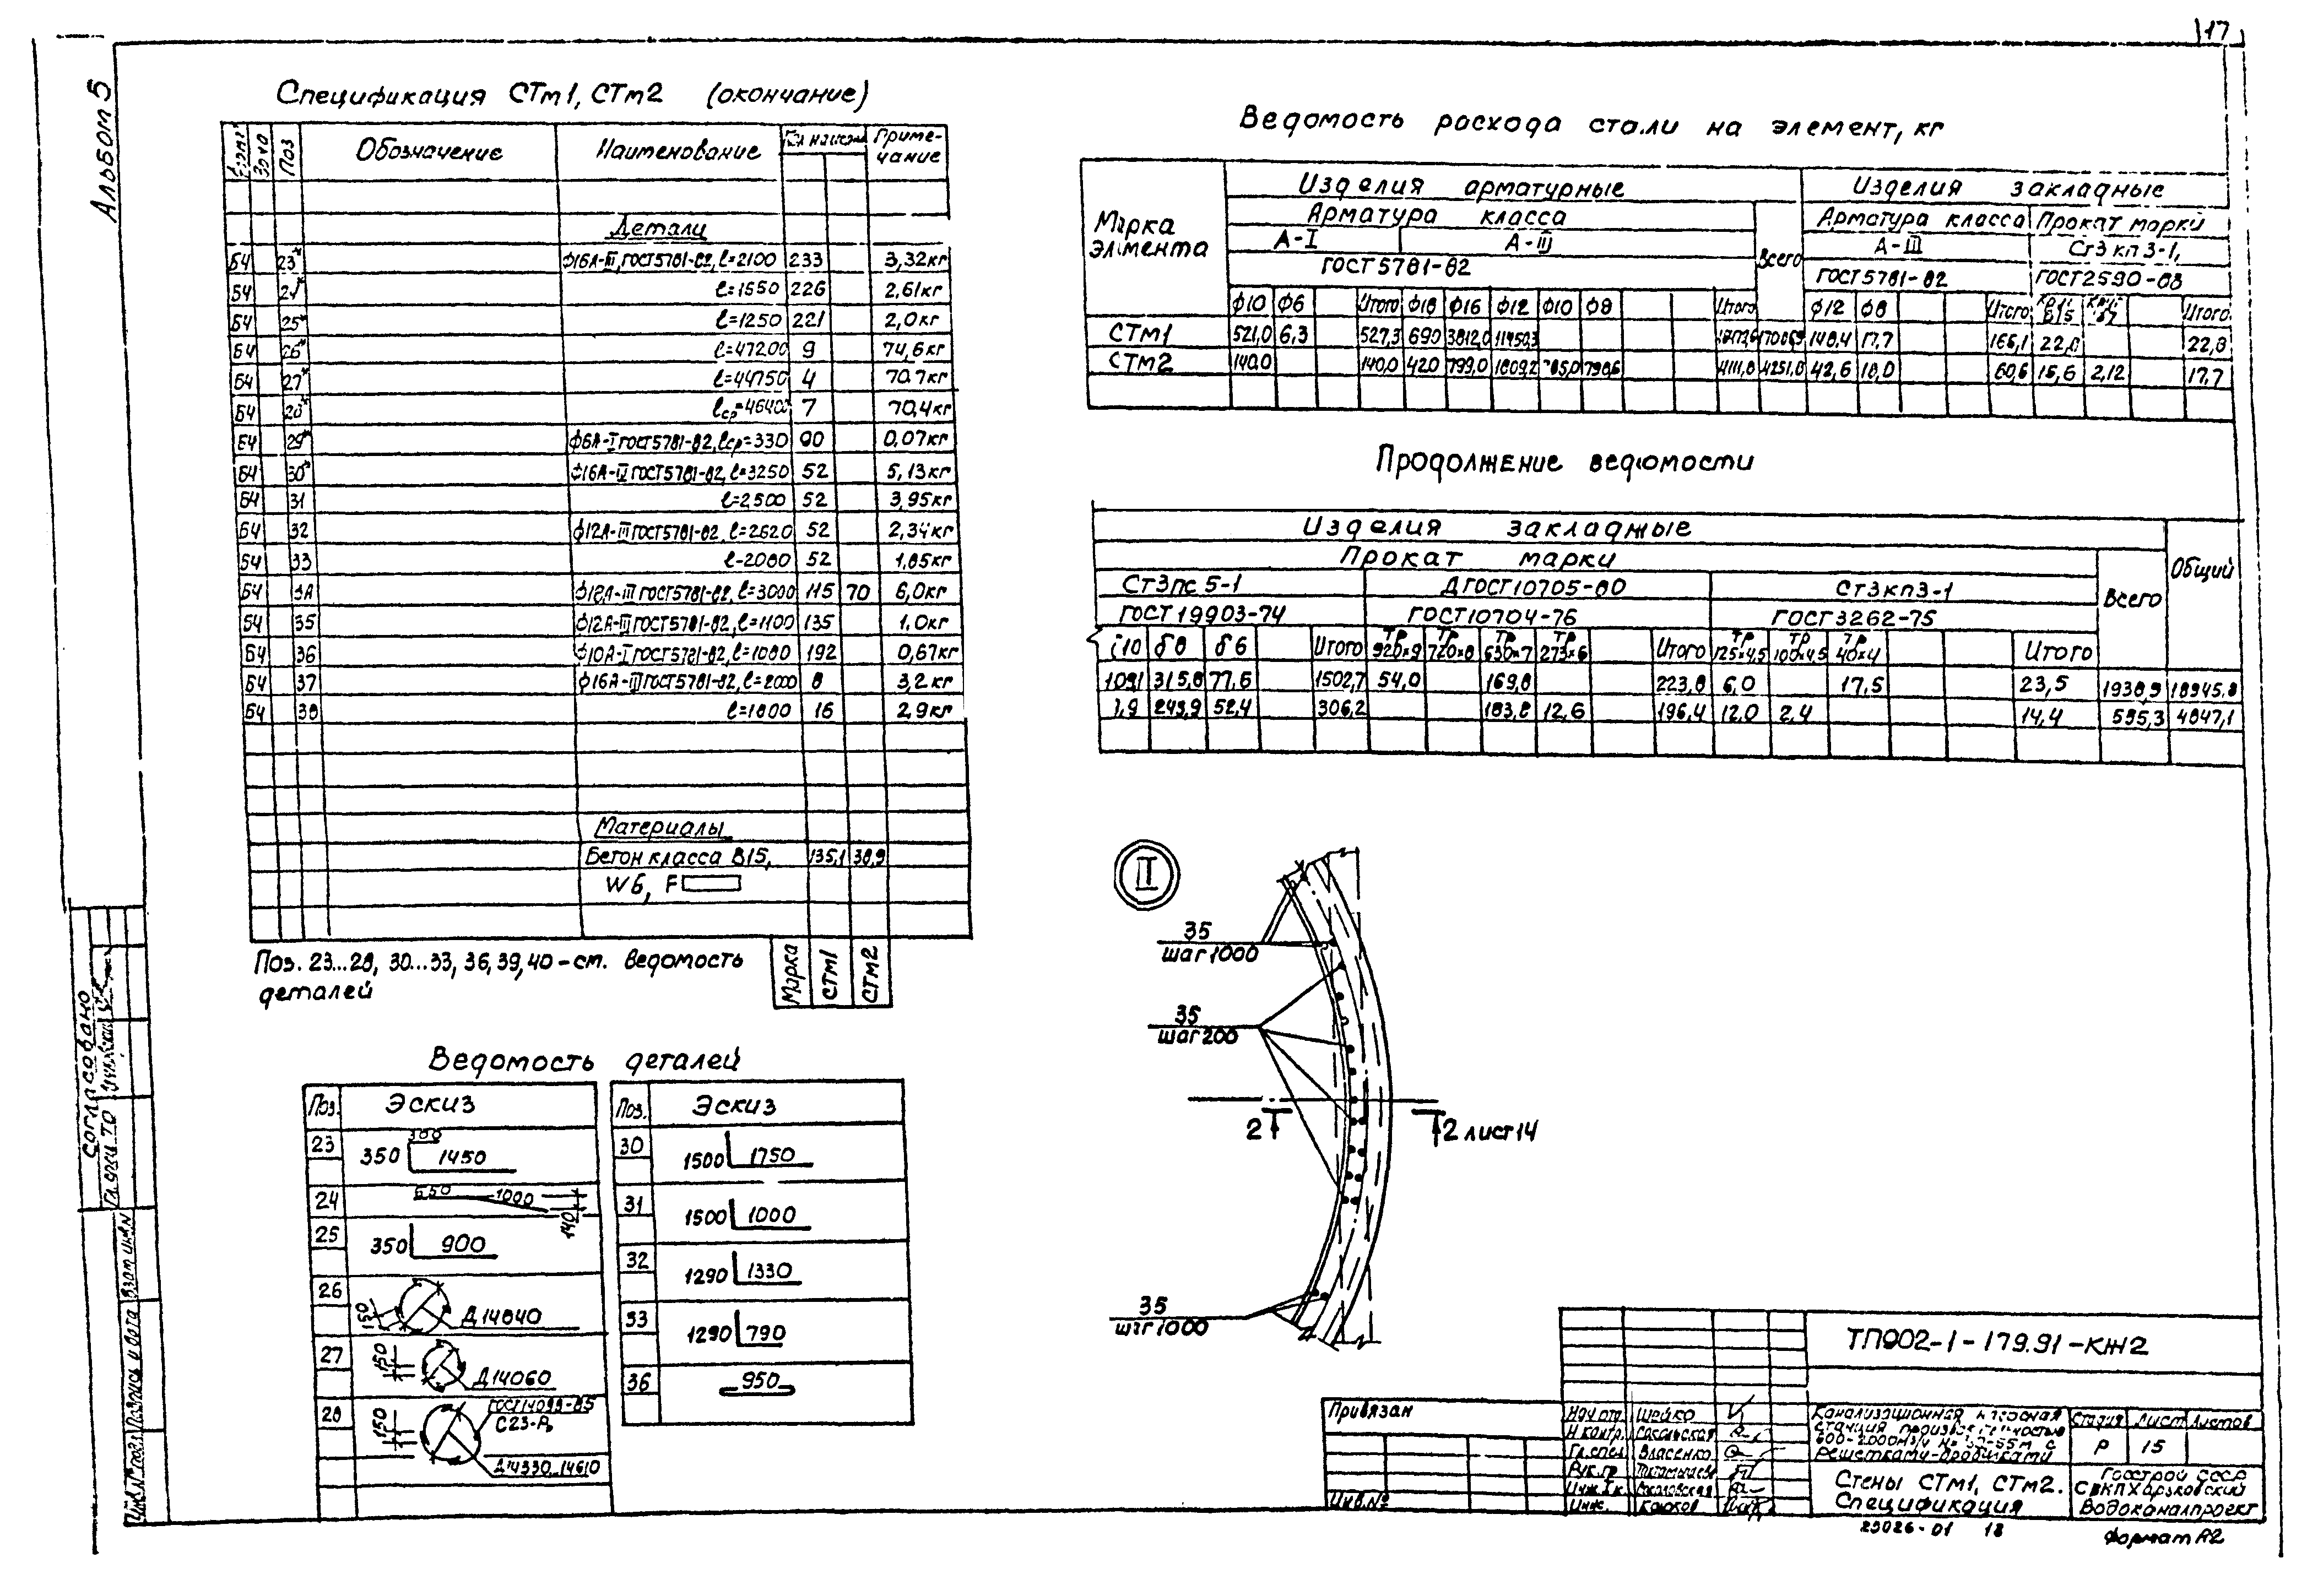 17
Альбом 5
Спецификация СТм1, СТм2 (окончание)
Зона Поз Обозначение Наименование Приме-
чание
Детали
Б4 23* Ф16А-III, ГОСТ5781-82, ℓ=2100 233 3,32кг
Б4 24* ℓ=1650 226 2,61кг
Б4 25* ℓ=1250 221 2,0кг
Б4 26* ℓ=47200 9 74,6кг
Б4 27* ℓ=44750 4 70,7кг
Б4 28* ℓср=46400 7 70,4кг
Б4 29* ф6А-I ГОСТ5781-82, ℓср=330 90 0,07кг
Б4 30* Ф16А-III ГОСТ5781-82, ℓ=3250 52 5,13кг
Б4 31 ℓ=2500 52 3,95кг
Б4 32 ф12А-III ГОСТ5781-82, ℓ=2620 52 2,34кг
Б4 33 ℓ-2080 52 1,85кг
Б4 34 Ф18А-III ГОСТ5781-82, ℓ=3000 115 70 6,0кг
Б4 35 Ф12А-III ГОСТ5781-82, ℓ=1100 135 1,0кг
Б4 36 Ф10А-I ГОСТ5781-82, ℓ=1080 192 0,67кг
Б4 37 ф16А-III ГОСТ5781-82, ℓ=2000 8 3,2кг
Б4 38 ℓ=1800 16 2,9кг
Материалы
Бетон класса В15, 135,1 38,9
W6, F
Марка СТм1 СТм2
Поз. 23...28, 30...33, 36, 39, 40 – см. ведомость
деталей
Ведомость деталей
Поз. Эскиз
23 350 300 1450
24 650 1000 140
25 350 900
26 150 Д14840
27 150 Д14060
28 150 ГОСТ14098-85
С23-Рэ
Д14330...14610
Поз. Эскиз
30 1500 1750
31 1500 1000
32 1290 1330
33 1290 790
36 950
Ведомость расхода стали на элемент, кг
Марка
элемента
Изделия арматурные Изделия закладные
Арматура класса Всего Арматура класса Прокат марки
А-I А-III А-III Ст3 кп 3-1,
ГОСТ5781-82 ГОСТ5781-82 ГОСТ2590-88
ф10 ф6 Итого ф18 ф16 ф12 ф10 ф8 Итого ф12 ф8 Итого Итого
СТм1 521,0 6,3 527,3 690 3812,0 11950,3 148,4 17,7 166,1 22,8 22,8
СТм2 140,0 140,0 420 799,0 1809,2 785,0 798,6 4111,8 4251,8 42,6 18,0 60,6 15,6 2,12 17,7
Продолжение ведомости
Изделия закладные Общий
Прокат марки Всего
Ст3пс 5-1 ДГОСТ10705-80 Ст3кп3-1
ГОСТ19903-74 ГОСТ10704-76 ГОСТ3262-75
δ10 δ8 δ6 Итого Тр 920×9 Тр 720×8 Тр 630×7 Тр 273×6 Итого Тр 125×4,5 Тр 100×4,5 Тр 40×4 Итого
1091 315,8 77,6 1502,7 54,0 169,8 223,8 6,0 17,5 23,5 1938,9 18945,8
249,9 52,4 306,2 183,8 12,6 196,4 12,0 2,4 14,4 595,3 4847,1
II
35
шаг1000
35
шаг200
2 2 лист14
35
шаг1000
Согласовано
Взам.инв.N
Подпись и дата
ТП902-1-179.91-КЖ2
Привязан
Инв.№
Нач.отд. Шейко
Н.контр. Сокольская
Гл.спец. Власенко
Рук.гр
Инж.
Канализационная насосная
станция производительностью
решетками-дробилками
Стадия Лист Листов
Р 15
Стены СТм1, СТм2.
Спецификация
Госстрой СССР
СВКП Харьковский
Водоканалпроект
25026-01 18
Формат А2